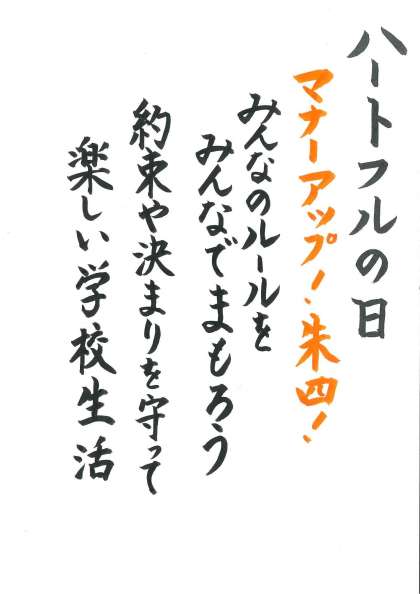 ハートフルの日
マナーアップ！朱四！
みんなのルールを
みんなでまもろう
約束や決まりを守って
楽しい学校生活